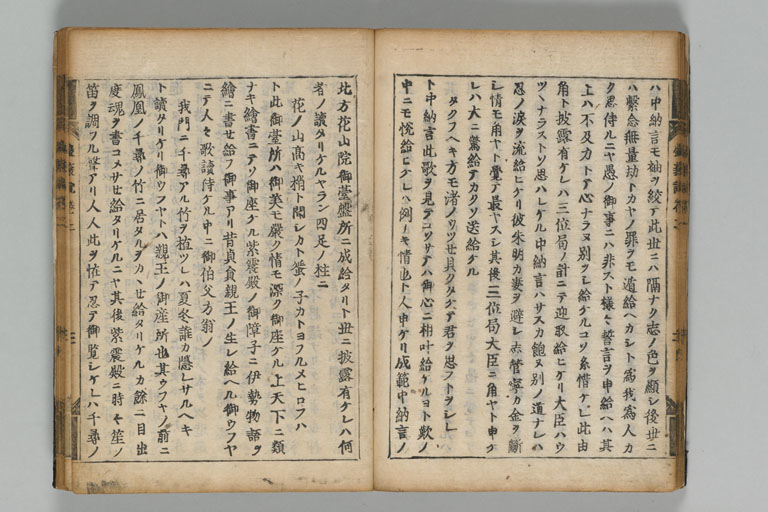 ハ中納言モ袖ヲ絞テ此丗ニハ隔ナク志ノ色ヲ顯シ後丗ニ
ハ繫念無量劫トカヤノ罪ヲモ遁給ヘカシト爲我爲人カ
ク忍侍ルニヤ愚ノ御事ニハ非スト様々誓言ヲ申給ヘハ其
上ハ不及力トテ心ナラヌ別ツレ給ケルコソ糸惜ケレ此由
角ト披露有ケレハ三位局ノ計ニテ迎取給ヒケリ大臣ハウ
ツヽナラストソ思ハレケル中納言ハサスカ飽ヌ別ノ道ナレハ
忍ノ涙ヲ流給ヒケリ彼朱明カ妻ヲ避シ志管寧カ金ヲ斷
シ情モ角ヤト覺テ最ヤスシ其後三位局大臣ニ角ヤト申ケ
レハ大ニ驚給テカクソ送給ケル
タクフヘキ方モ渚ノウツセ貝クタケテ君ヲ思フトヲシレ
ト中納言此歌ヲ見テコソサテハ御心ニ相叶給ケルヨト歎ノ
中ニモ悦給ヒケレハ例ノキ情也ト人申ケリ成範中納言ノ
北方花山院御臺盤所ニ成給タリト丗ニ披露有ケレハ何
者ノ讀タリケルヤラン四足ノ柱ニ
花ノ山高キ梢ト聞シカト蜑ノ子カトヨフルメヒロフハ
ト此御臺所ハ御美モ嚴ク情モ深ク御座ケル上天下ニ類
ナキ繪書ニテソ御座ケル紫宸殿ノ御障子ニ伊勢物語ヲ
繪ニ書セ給フ御事アリ昔貞員親王ノ生レ給ヘル御ウフヤ
ニテ人々歌讀侍ケル中ニ御伯父方翁ノ
我門ニ千尋アル竹ヲ植ツレハ夏冬誰カ隱レサルヘキ
ト讀タリケリ御ウフヤトハ親王ノ御産所也其ウフヤノ前ニ
鳳凰ノ千尋ノ竹ニ居タルヲカヽセ給タリケルカ餘ニ目出
度魂ヲ書コメサセ給タリケルニヤ其後紫宸殿ニ時々笙ノ
笛ヲ調フル聲アリ人人此ヲ恠テ忍テ御覧シケレハ千尋ノ